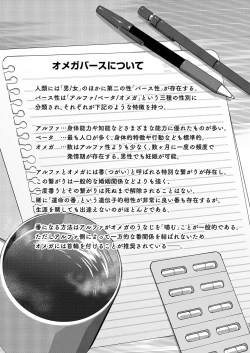 オメガバースについて
人類には「男/女」のほかに第二の性「バース性」が存在する。
バース性は「アルファ/ベータ/オメガ」という三種の性別に
分類され、それぞれが下記のような特徴を持つ。
アルファ…身体能力や知能などさまざまな能力に優れたものが多い。
ベータ…最も人口が多く、身体的特徴や行動なども標準的。
オメガ…数はアルファ性よりも少なく、数ヶ月に一度の頻度で
発情期が存在する。男性でも妊娠が可能。
アルファとオメガには番(つがい)と呼ばれる特別な繋がりが存在し、
この繋がりは一般的な婚姻関係などよりも強く、
一度番うとその繋がりは死ぬまで解除されることはない。
稀に「運命の番」という遺伝子的相性が非常に良い番も存在するが、
生涯を賭しても出逢えないのがほとんどである。
番になる方法はアルファがオメガのうなじを「噛む」ことが一般的である。
ただしアルファ側によって一方的な番関係を結ばれないため
オメガには首輪を付けることが推奨されている